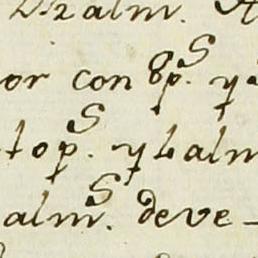 2 alm.
or con 8 p.^S y
to p.^S y 6 alm
alm.^S deve